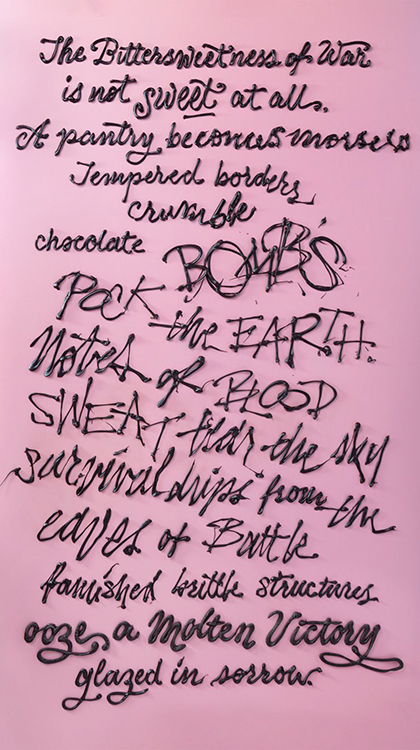 The Bittersweetness of War
is not sweet at all.
A pantry becomes morsels
Tempered borders
crumble
chocolate BOMBS
POCK the EARTH.
Notes of BLOOD
SWEAT tear the sky
survival drips from the
eaves of Battle
famished brittle structures
ooze, a Molten Victory
glazed in sorrow.